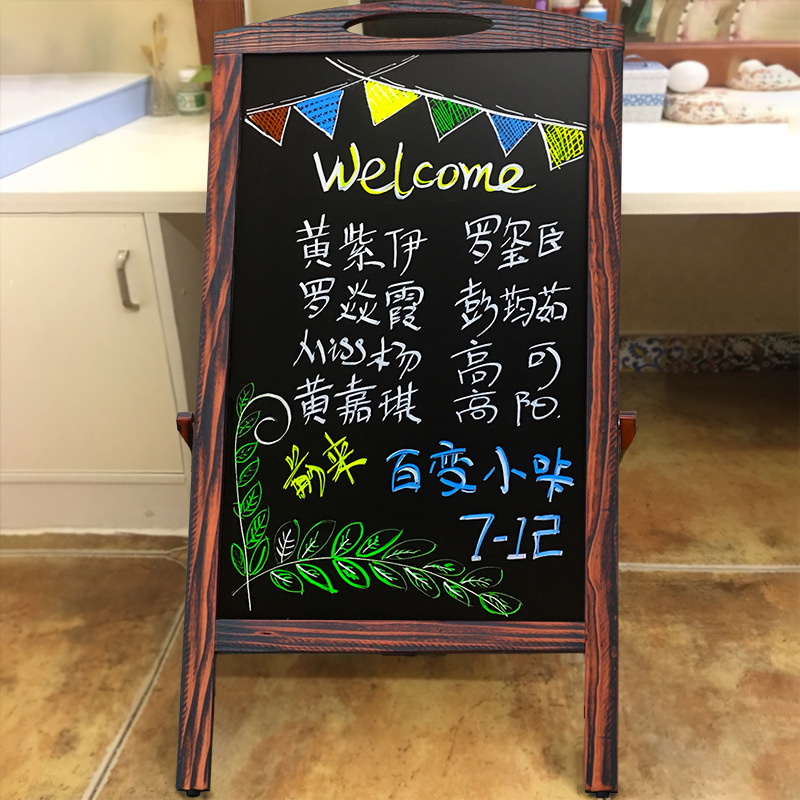 Welcome
黄紫伊 罗玺臣
罗焱霞 彭筠茹
Miss杨 高可
黄嘉琪 高阳.
前来 百变小咔
7-12